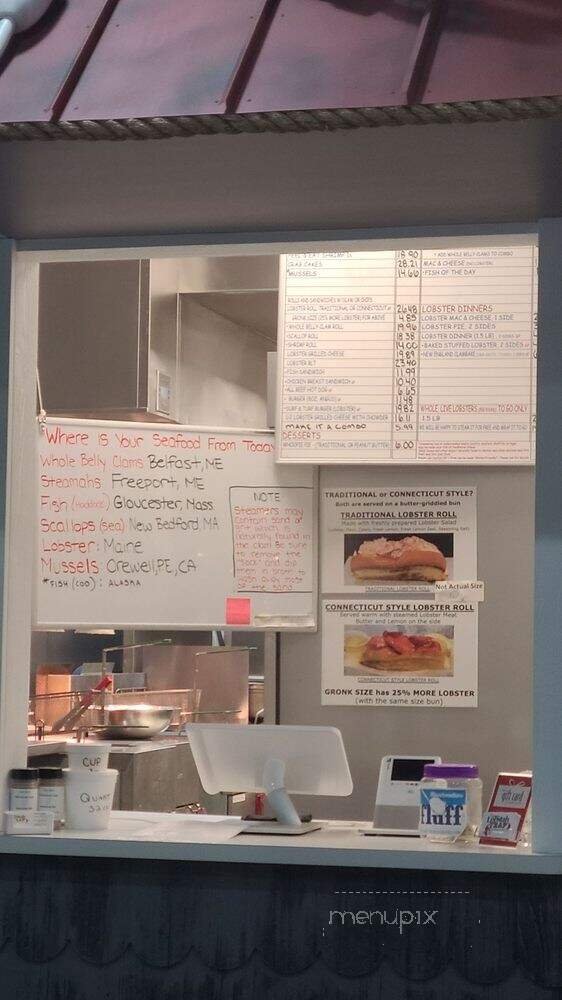 CRAB CAKES 28.21
*MUSSELS 14.66
+ ADD WHOLE BELLY CLAMS TO COMBO
MAC & CHEESE
*FISH OF THE DAY
LOBSTER ROLL, TRADITIONAL OR CONNECTICUT 26.48
GRONK SIZE (25% MORE LOBSTER) FOR ABOVE 4.85
*WHOLE BELLY CLAM ROLL 19.96
*SCALLOP ROLL 18.38
*SHRIMP ROLL 14.00
LOBSTER GRILLED CHEESE 19.89
LOBSTER BLT 23.40
*FISH SANDWICH 11.99
*CHICKEN BREAST SANDWICH 10.40
*ALL BEEF HOT DOG 6.65
11.48
*SURF & TURF BURGER (LOBSTER) 19.82
1/2 LOBSTER GRILLED CHEESE WITH CHOWDER 16.11
MAKE IT A COMBO 5.99
DESSERTS
WHOOPIE PIE - (TRADITIONAL OR PEANUT BUTTER) 6.00
LOBSTER DINNERS
LOBSTER MAC & CHEESE, 1 SIDE
LOBSTER PIE, 2 SIDES
LOBSTER DINNER (1.5 LB)
*BAKED STUFFED LOBSTER, 2 SIDES
*NEW ENGLAND CLAMBAKE
WHOLE LIVE LOBSTERS TO GO ONLY
1.5 LB
WE WILL BE HAPPY TO STEAM IT FOR FREE AND WRAP IT TO GO
Where is Your Seafood From Today
Whole Belly Clams Belfast, ME
Steamahs Freeport, ME
Fish (Haddock) Gloucester, Mass.
Scallops (sea) New Bedford, MA
Lobster: Maine
Mussels: Crewel, PE, CA
*FISH (COD): ALASKA
NOTE
Steamers may
contain sand or
grit which is
naturally found in
the clam. Be sure
to remove the
and dip
them in broth to
wash away most
of the sand
TRADITIONAL or CONNECTICUT STYLE?
Both are served on a butter-griddled bun
TRADITIONAL LOBSTER ROLL
Made with freshly prepared Lobster Salad
TRADITIONAL LOBSTER ROLL
Not Actual Size
CONNECTICUT STYLE LOBSTER ROLL
Served warm with steamed Lobster Meat
Butter and Lemon on the side
CONNECTICUT STYLE LOBSTER ROLL
GRONK SIZE has 25% MORE LOBSTER
(with the same size bun)
CUP
QUART
fluff
gift card
menupix